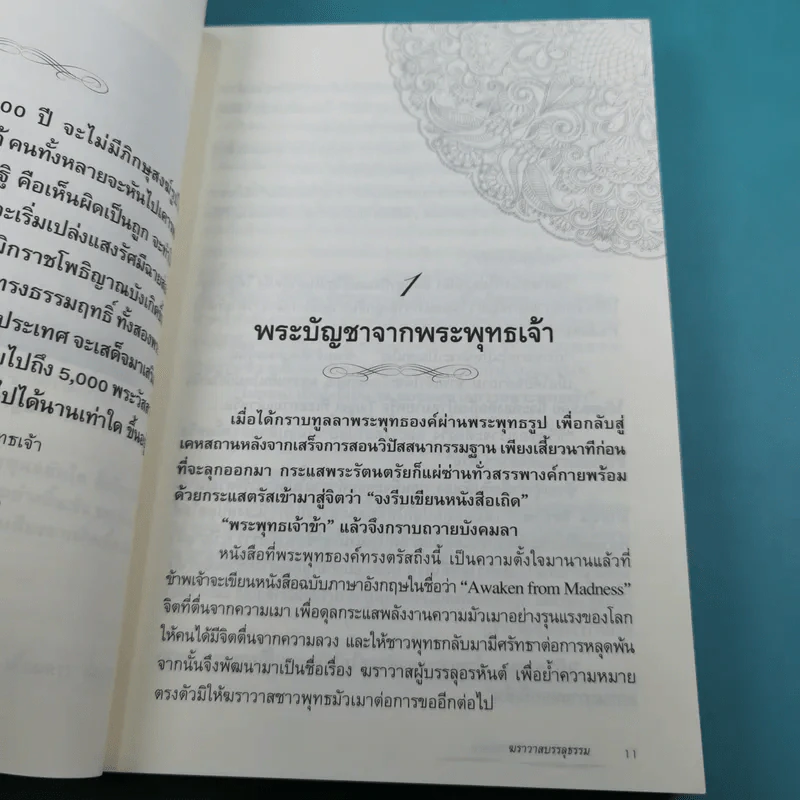 00 ปี จะไม่มีภิกษุสงฆ์
คนทั้งหลายจะหันไป
คือเห็นผิดเป็นถูก
จะเริ่มเปล่งแสงรัศมี
มิกราชโพธิญาณบังเกิด
ทรงธรรมฤทธิ์ ทั้งสอง
ประเทศ จะเสด็จมา
ไปถึง 5,000 พระวัสสา
ไปได้นานเท่าใด ขึ้นอยู่
ทธเจ้า
1
พระบัญชาจากพระพุทธเจ้า
เมื่อได้กราบทูลลาพระพุทธองค์ผ่านพระพุทธรูป เพื่อกลับสู่
เคหสถานหลังจากเสร็จการสอนวิปัสสนากรรมฐาน เพียงเสี้ยวนาทีก่อน
ที่จะลุกออกมา กระแสพระรัตนตรัยก็แผ่ซ่านทั่วสรรพางค์กายพร้อม
ด้วยกระแสตรัสเข้ามาสู่จิตว่า “จงรีบเขียนหนังสือเถิด”
“พระพุทธเจ้าข้า” แล้วจึงกราบถวายบังคมลา
หนังสือที่พระพุทธองค์ทรงตรัสถึงนี้ เป็นความตั้งใจมานานแล้วที่
ข้าพเจ้าจะเขียนหนังสือฉบับภาษาอังกฤษในชื่อว่า “Awaken from Madness”
จิตที่ตื่นจากความเมา เพื่อดุลกระแสพลังงานความมัวเมาอย่างรุนแรงของโลก
ให้คนได้มีจิตตื่นจากความลวง และให้ชาวพุทธกลับมามีศรัทธาต่อการหลุดพ้น
จากนั้นจึงพัฒนามาเป็นชื่อเรื่อง ฆราวาสผู้บรรลุอรหันต์ เพื่อย้ำความหมาย
ตรงตัวมิให้ฆราวาสชาวพุทธมัวเมาต่อการขออีกต่อไป
ฆราวาสบรรลุธรรม 11